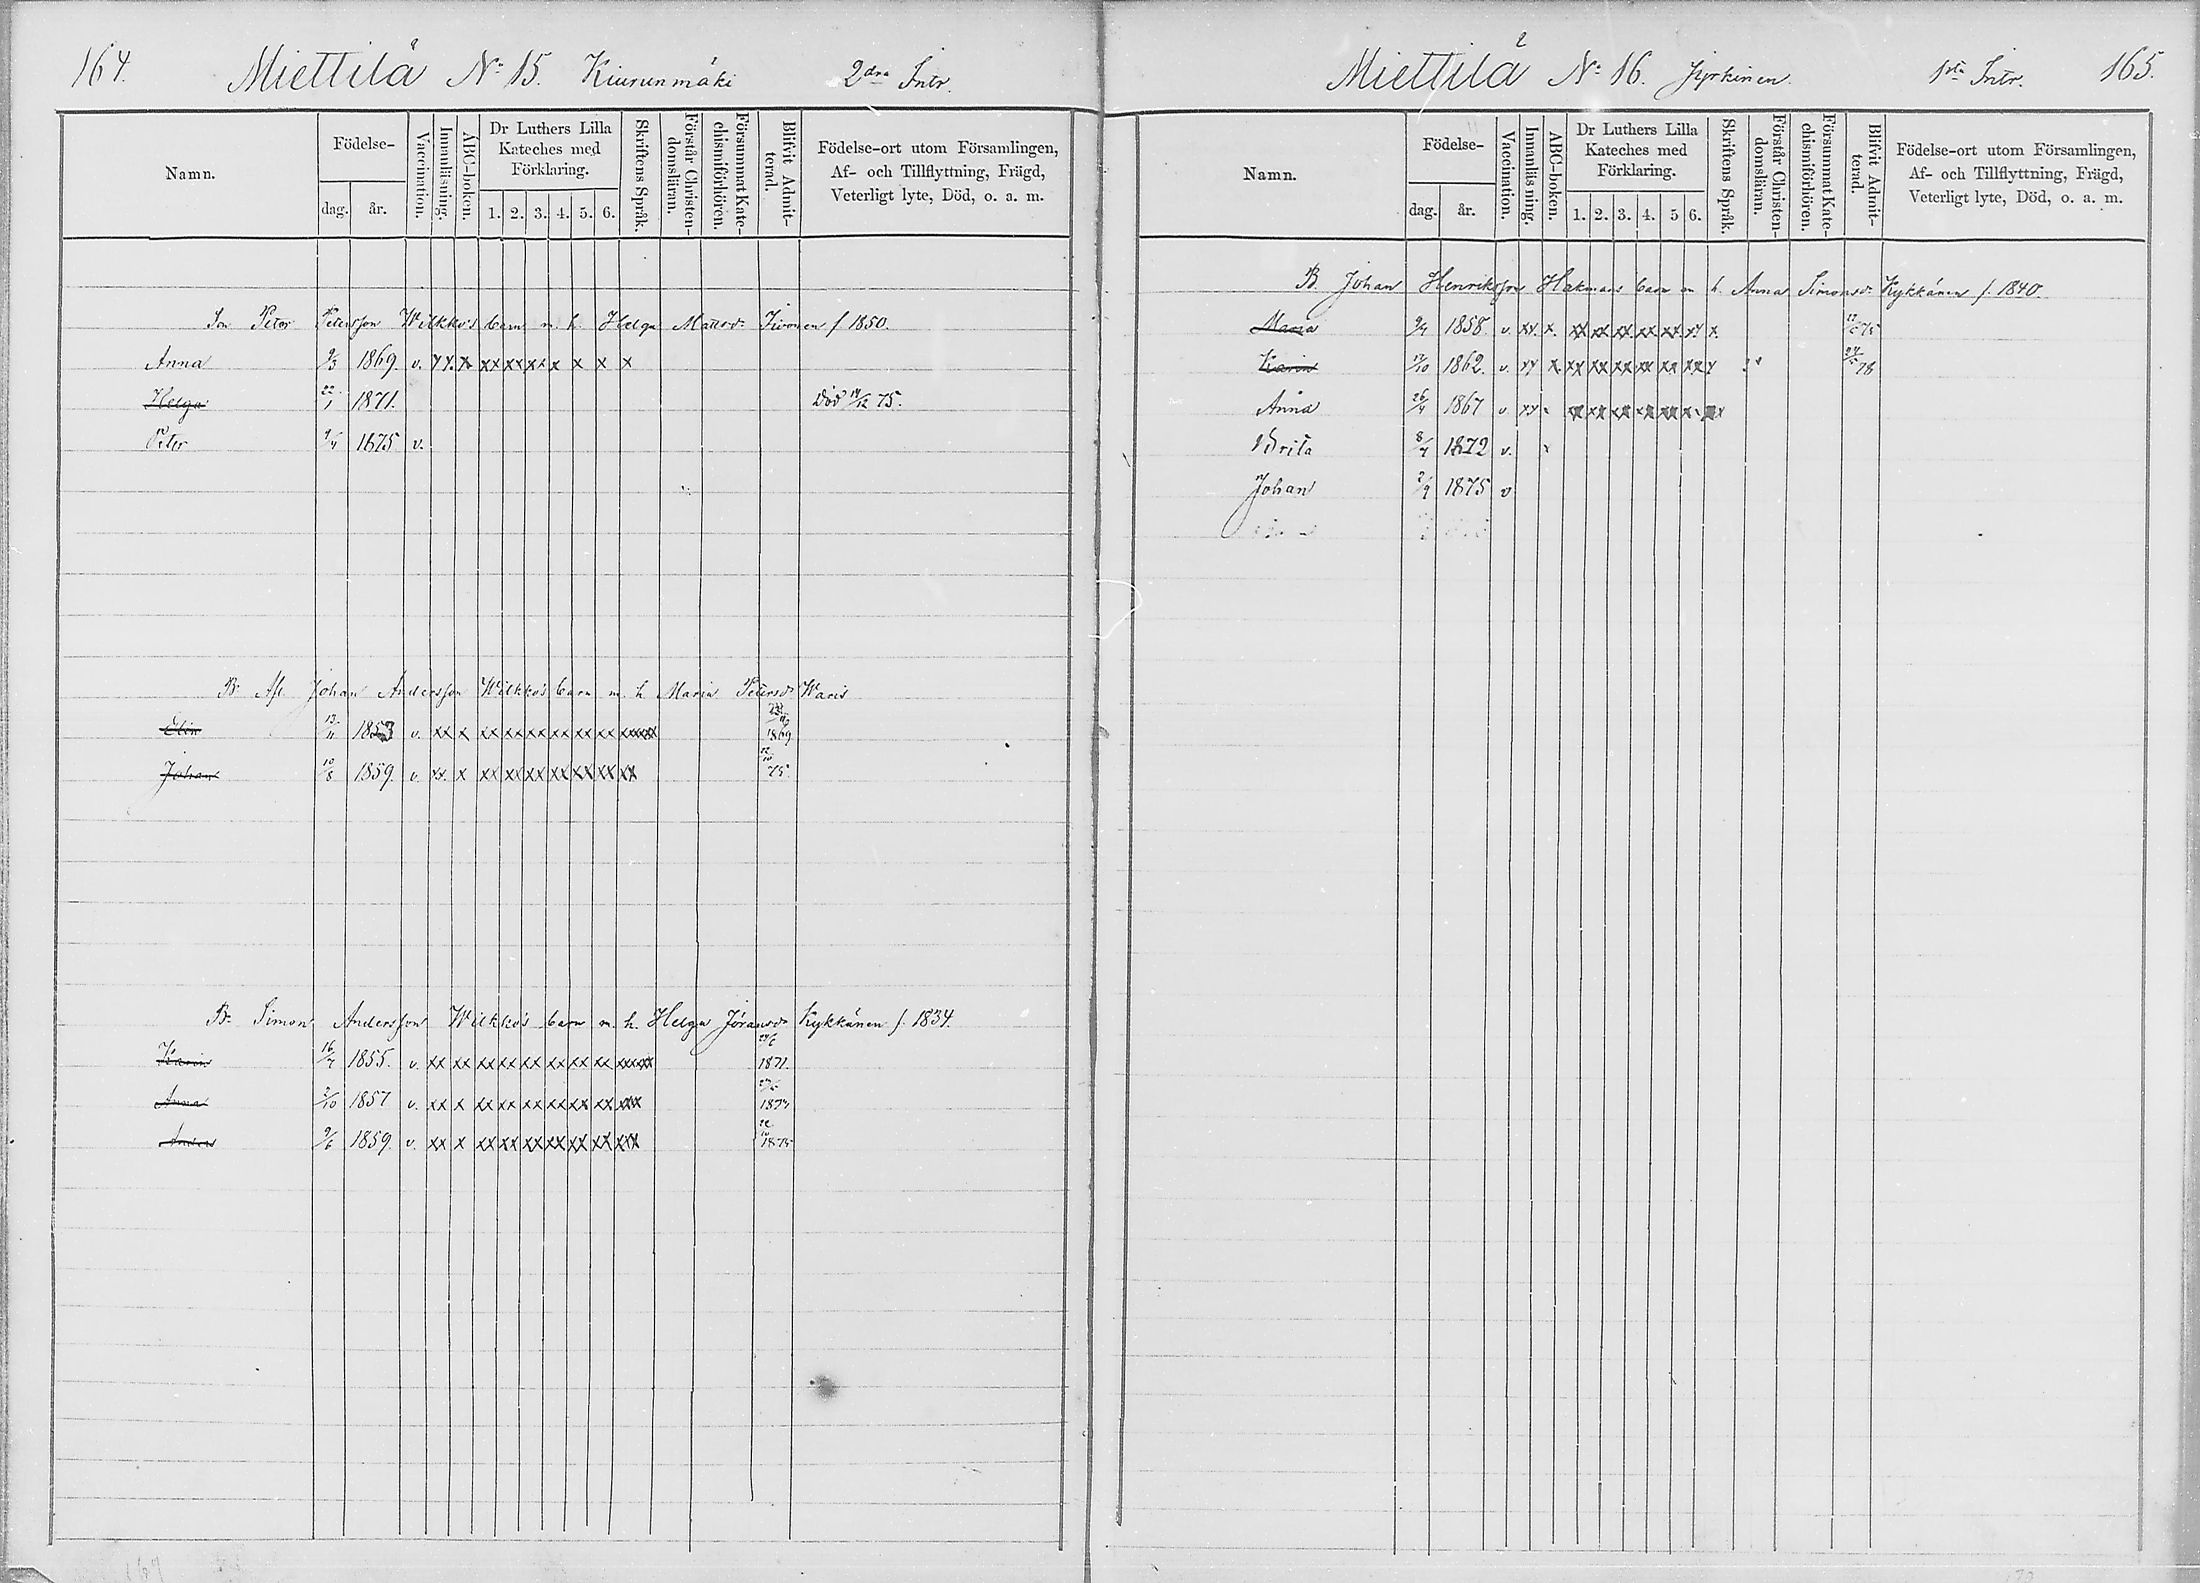 164. Miettilä № 15. Kiurunmäki 2dra Intr.
Namn.
Födelse-
dag. år.
Vaccination.
Innanläsning.
ABC-boken.
Dr Luthers Lilla
Kateches med
Förklaring.
1. 2. 3. 4. 5. 6.
Skriftens Språk.
Förstår Christen-
domsläran.
Försummat Kate-
chismiförhören.
Blifvit Admit-
terad.
Födelse-ort utom Församlingen,
Af- och Tillflyttning, Frägd,
Veterligt lyte, Död, o. a. m.
Son Peter Petersson Wilkko's barn m. h. Helga Mattsdr f 1850.
Anna 9/3 1869. v. xx. x xx xx xx x x x x
Helga 22/1 1871. Död 12 75.
Peter 9/4 1875 v.
Br Afl. Johan Andersson Wilkko's barn m. h. Maria Petersdr Waris
Elin 13/11 1853 v. xx x xx xx xx xx xx xx xxxxx 1869
Johan 10/8 1859. v. xx. x xx xx xx xx xx xx xx 12/10 75
Br Simon Andersson Wilkko's barn m. h. Helga Jöransdr Kykkänen f. 1834.
Karin 16/7 1855. v. xx xx xx xx xx xx xx xx xxxxx 24/6 1871.
Anna 2/10 1857 v. xx x xx xx xx xx xx xx xxx
Andres 9/6 1859. v. xx x xx xx xx xx xx xx xxx 1875
Miettilä № 16. Jyrkinen. 1sta Intr. 165.
Namn.
Födelse-
dag. år.
Vaccination.
Innanläsning.
ABC-boken.
Dr Luthers Lilla
Kateches med
Förklaring.
1. 2. 3. 4. 5 6.
Skriftens Språk.
Förstår Christen-
domsläran.
Försummat Kate-
chismiförhören.
Blifvit Admit-
terad.
Födelse-ort utom Församlingen,
Af- och Tillflyttning, Frägd,
Veterligt lyte, Död, o. a. m.
B. Johan Henriksson Hakmans barn m h. Anna Simonsdr Kykkänen f. 1840.
Maria 9/4 1858. v. xx. x. xx xx xx xx xx xx x. 75
Karin 17/10 1862. v. xx x xx xx xx xx xx xx x 78
Anna 26/4 1867 v. xx x xx xx xx xx xx
Brita 8/4 1872 v. x
Johan 2/9 1875 v